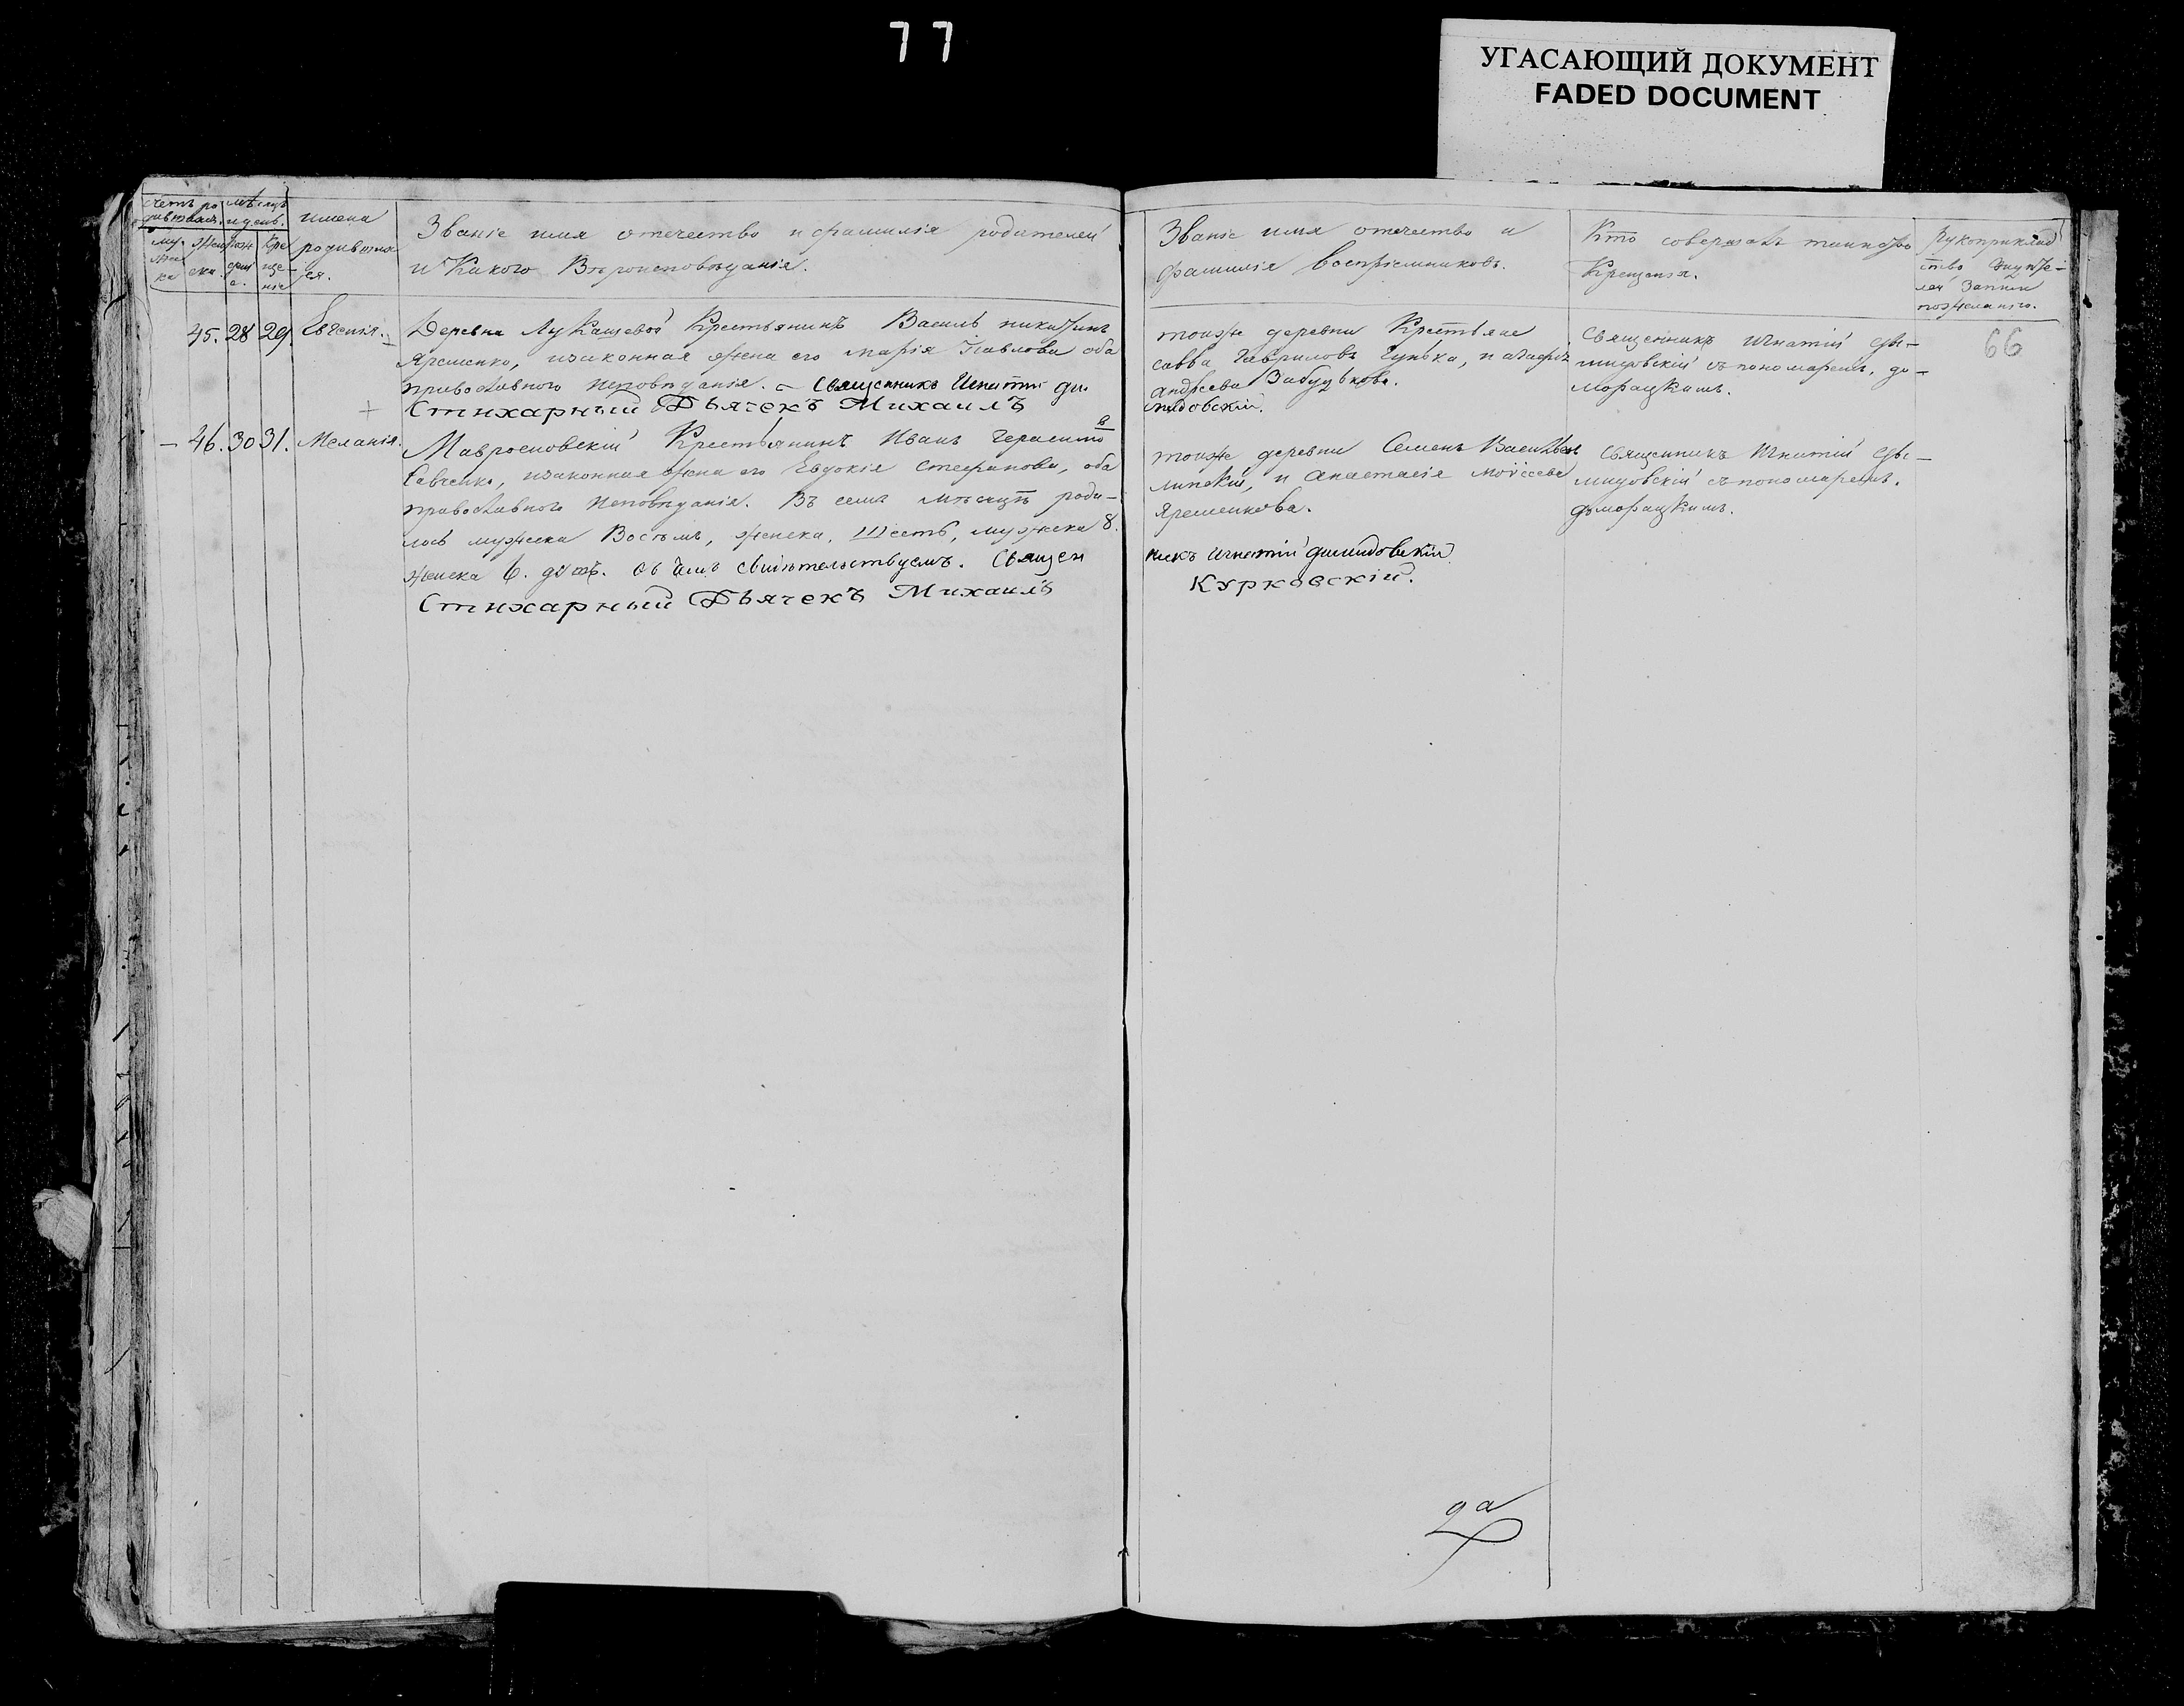 77
УГАСАЮЩИЙ ДОКУМЕНТ
FADED DOCUMENT
имена
родившихся.
Званіе имя отечество и фамилія родителей
и Какого Вѣроисповѣданія.
Званіе имя отечество и
фамилія воспріемниковъ.
Кто совершалъ таинство
Крещенія.
Рукоприклад
ство Свидѣте-
лей Записи
пожеланію.
66
45. 28 29. Евгенія.
Деревни Лукашевой Крестьянинъ Василь никитинъ
Яременко, изаконная жена его марія Павлова оба
православного исповѣданія. Священникъ Игнатій ди
Стихарный Дьячекъ Михаилъ
тоиже деревни Крестьяне
савва Гавриловъ Гунька, и агафія
андреева Забудькова.
мидовскій.
Священникъ Игнатій ды-
мидовскій съ пономаремъ, до-
морацкимъ.
46. 30 31. Меланія.
Мавроеновскій Крестьянинъ Иванъ Герасимо
въ
Савченко, изаконная жена его Евдокія стефанова, оба
православного исповѣданія. Въ семъ мѣсяцѣ роди-
лось мужеска Восемь, женска, Шесть, мужеска 8.
женска 6. душъ. въ чемъ свидѣтельствуемъ. Священ
Стихарный Дьячекъ Михаилъ
тоиже деревни Семенъ Васильевъ
липскій, и анастасія мойсеева
Яременкова.
никъ Игнатій димидовскій
Курковскій.
Священникъ Игнатій ды-
мидовскій съ пономаремъ.
доморацкимъ.